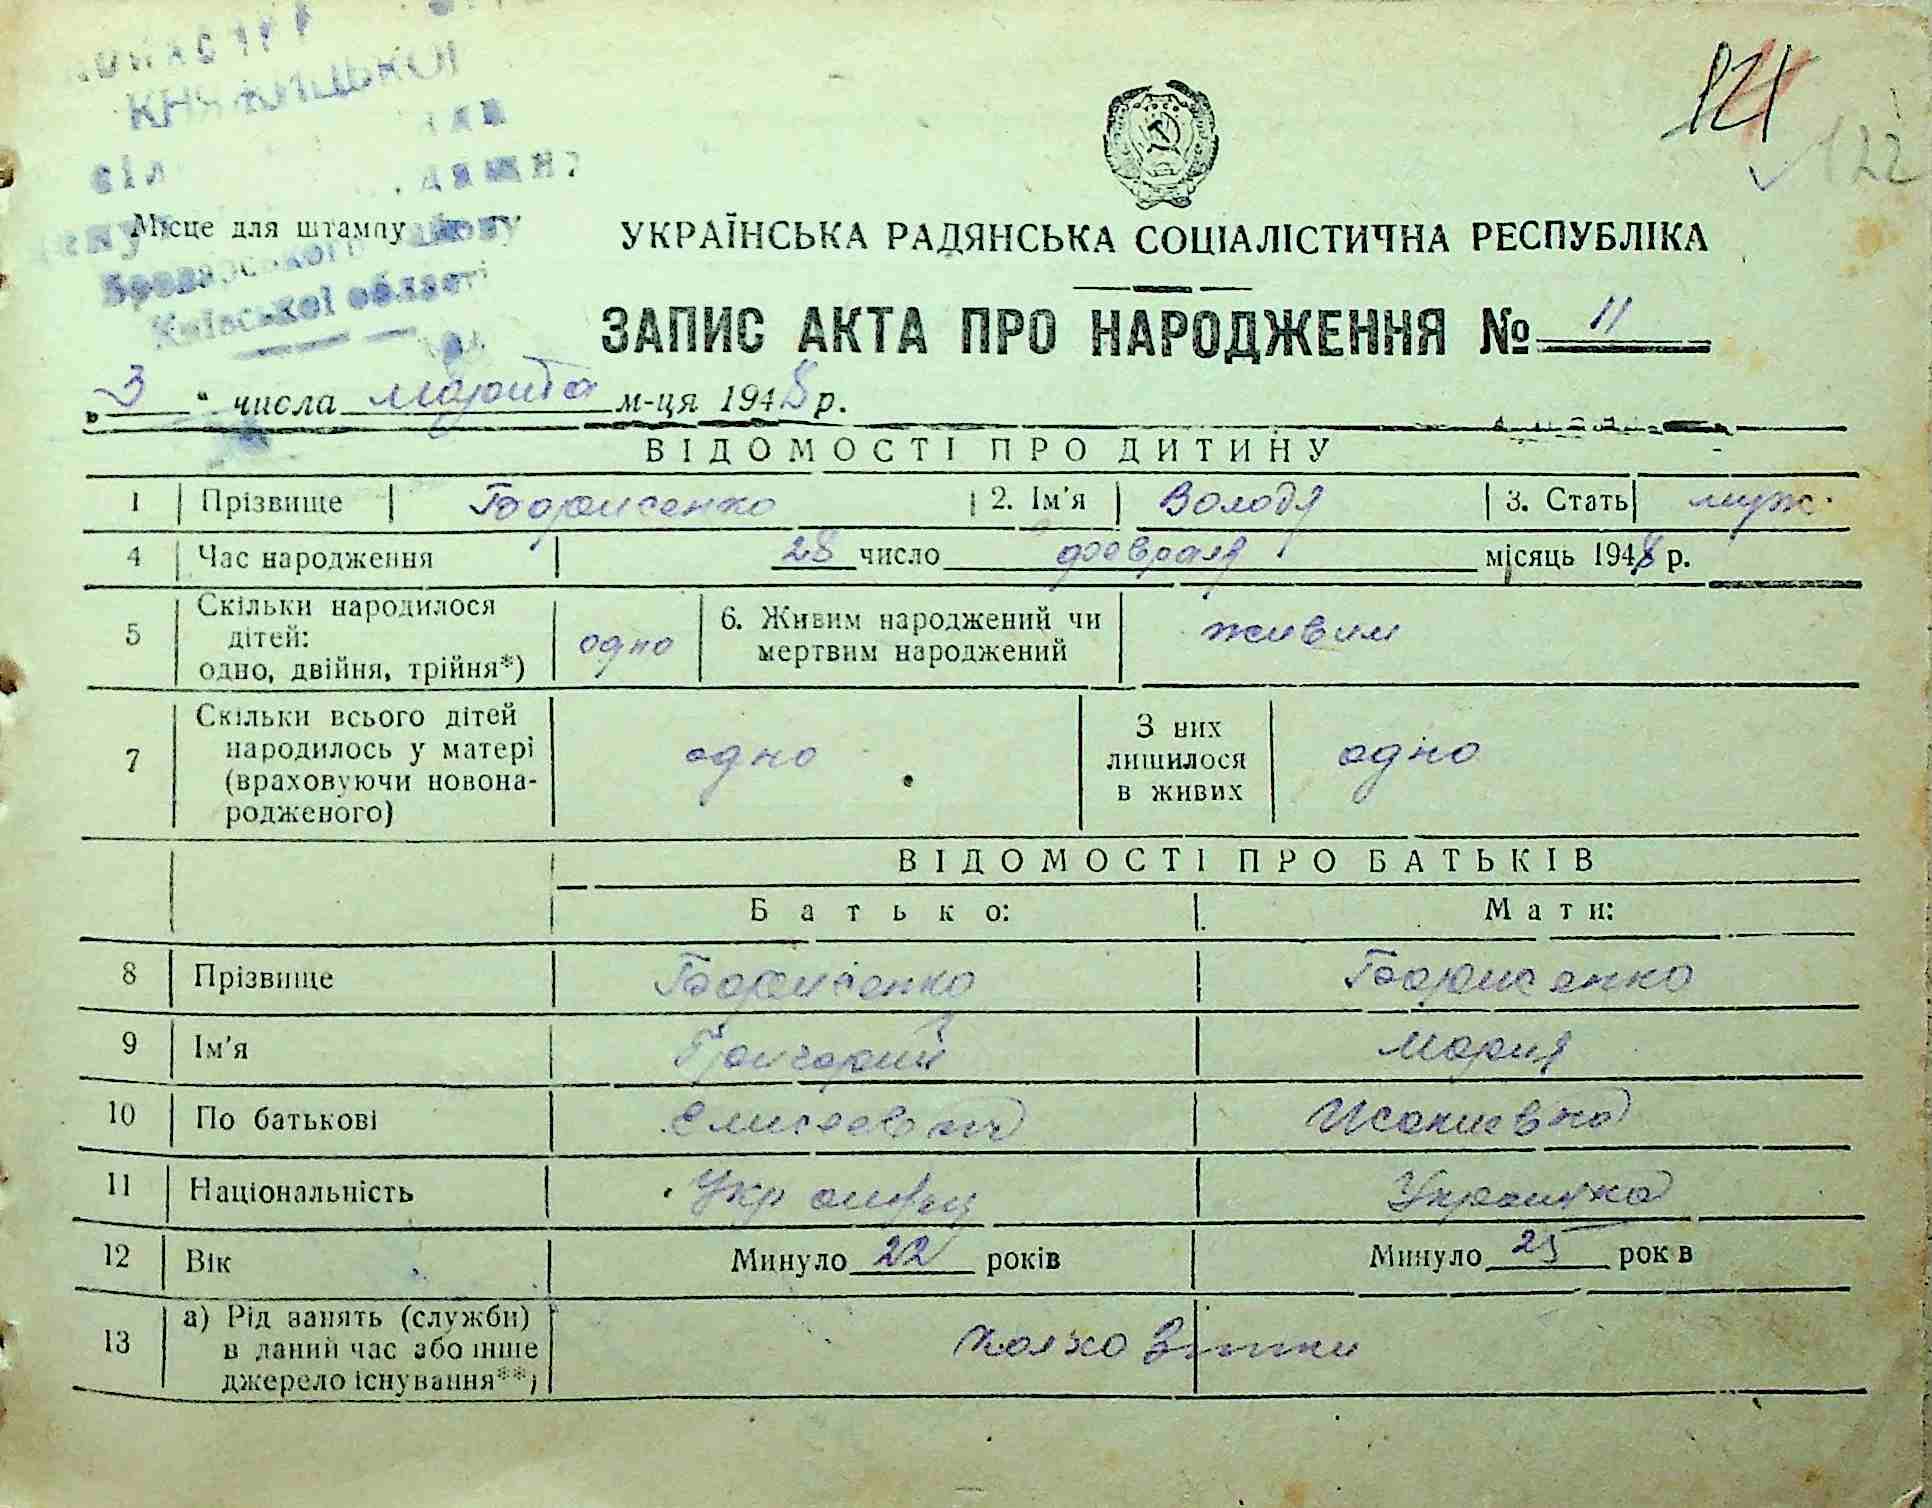 КНЯЖИЦЬКОЇ
сіл
Броварського району
Київської області
121
122
Місце для штампу
УКРАЇНСЬКА РАДЯНСЬКА СОЦІАЛІСТИЧНА РЕСПУБЛІКА
ЗАПИС АКТА ПРО НАРОДЖЕННЯ № 11
„3“ числа марта м-ця 1948 р.
ВІДОМОСТІ ПРО ДИТИНУ
1 Прізвище Борисенко 2. Ім'я Володя 3. Стать муж.
4 Час народження 28 число февраля місяць 1948 р.
5 Скільки народилося дітей: одно, двійня, трійня*) одно 6. Живим народжений чи мертвим народжений живим
7 Скільки всього дітей народилось у матері (враховуючи новонародженого) одно З них лишилося в живих одно
ВІДОМОСТІ ПРО БАТЬКІВ
Батько: Мати:
8 Прізвище Борисенко Борисенко
9 Ім'я Григорий Мария
10 По батькові Елисеевич Исакиевна
11 Національність Украинец Украинка
12 Вік Минуло 22 років Минуло 25 рок в
13 а) Рід занять (служби) в даний час або інше джерело існування**) колхозники